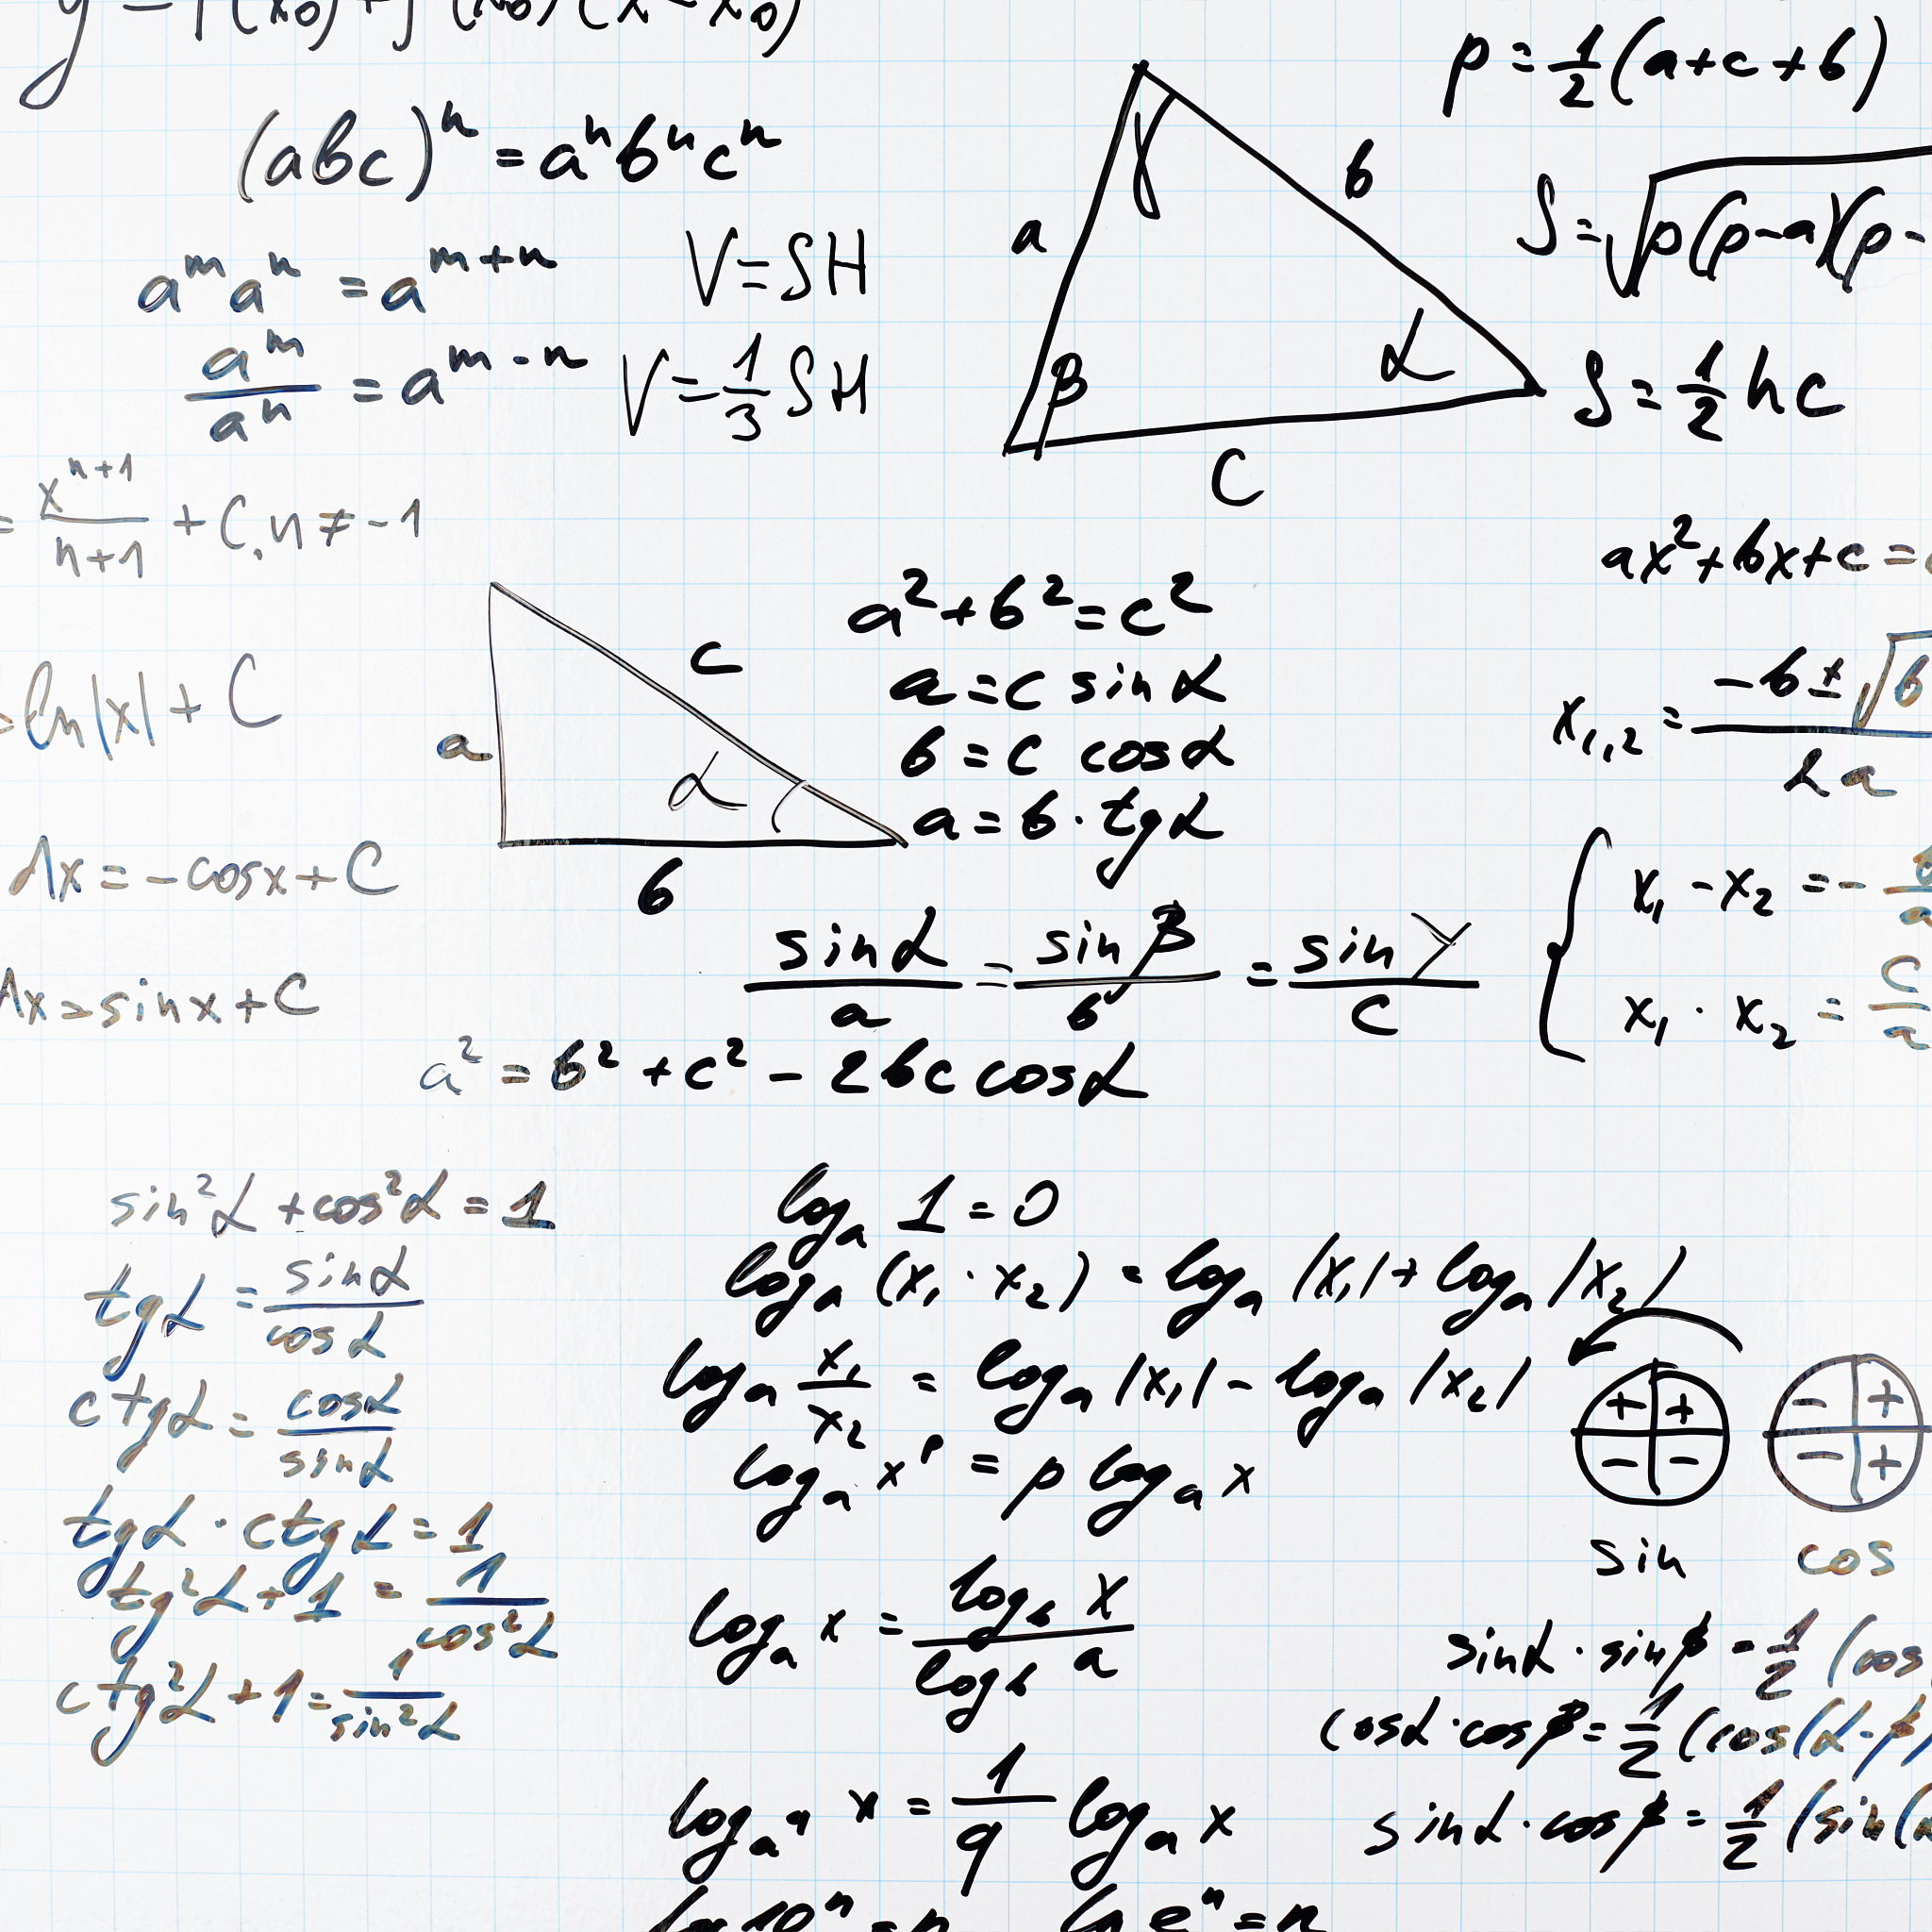 y = f(x₀) + f'(x₀)(x - x₀)
(abc)ⁿ = aⁿbⁿcⁿ
aᵐaⁿ = aᵐ⁺ⁿ
aᵐ/aⁿ = aᵐ⁻ⁿ
V = SH
V = 1/3 SH
a
b
C
γ
β
α
p = 1/2(a+c+b)
S = √p(p-a)(p-
S = 1/2 hc
= xⁿ⁺¹/(n+1) + C, n ≠ -1
= ln|x| + C
Λx = -cosx + C
Λx = sinx + C
a
c
α
b
a² + b² = c²
a = c sinα
b = c cosα
a = b · tgα
sinα/a = sinβ/b = sinγ/c
a² = b² + c² - 2bc cosα
ax² + bx + c =
x₁,₂ = (-b ± √b)/2a
x₁ - x₂ = -
x₁ · x₂ = c/a
sin²α + cos²α = 1
tgα = sinα/cosα
ctgα = cosα/sinα
tgα · ctgα = 1
tg²α + 1 = 1/cos²α
ctg²α + 1 = 1/sin²α
logₐ 1 = 0
logₐ (x₁ · x₂) = logₐ |x₁| + logₐ |x₂|
logₐ x₁/x₂ = logₐ |x₁| - logₐ |x₂|
logₐ xᵖ = p logₐ x
logₐ x = log_b x / log_b a
log_a^q x = 1/q logₐ x
lg 10ⁿ = n
ln eⁿ = n
+ +
- -
sin
- +
- +
cos
sinα · sinβ = 1/2 (cos
cosα · cosβ = 1/2 (cos(α-β)
sinα · cosβ = 1/2 (sin(α